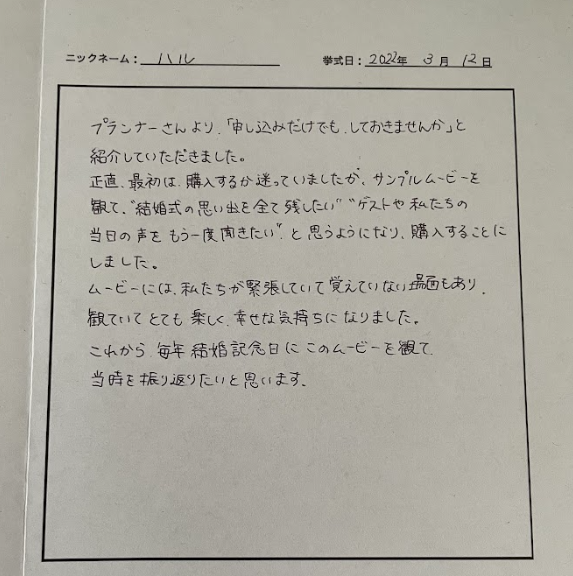 ニックネーム： ハル 挙式日： 2022年 3月 12日
プランナーさんより、「申し込みだけでも、しておきませんか」と
紹介していただきました。
正直、最初は、購入するか迷っていましたが、サンプルムービーを
観て、"結婚式の思い出を全て残したい" "ゲストや私たちの
当日の声をもう一度聞きたい" と思うようになり、購入することに
しました。
ムービーには、私たちが緊張していて覚えていない場面もあり、
観ていてとても楽しく、幸せな気持ちになりました。
これから、毎年結婚記念日にこのムービーを観て、
当時を振り返りたいと思います。